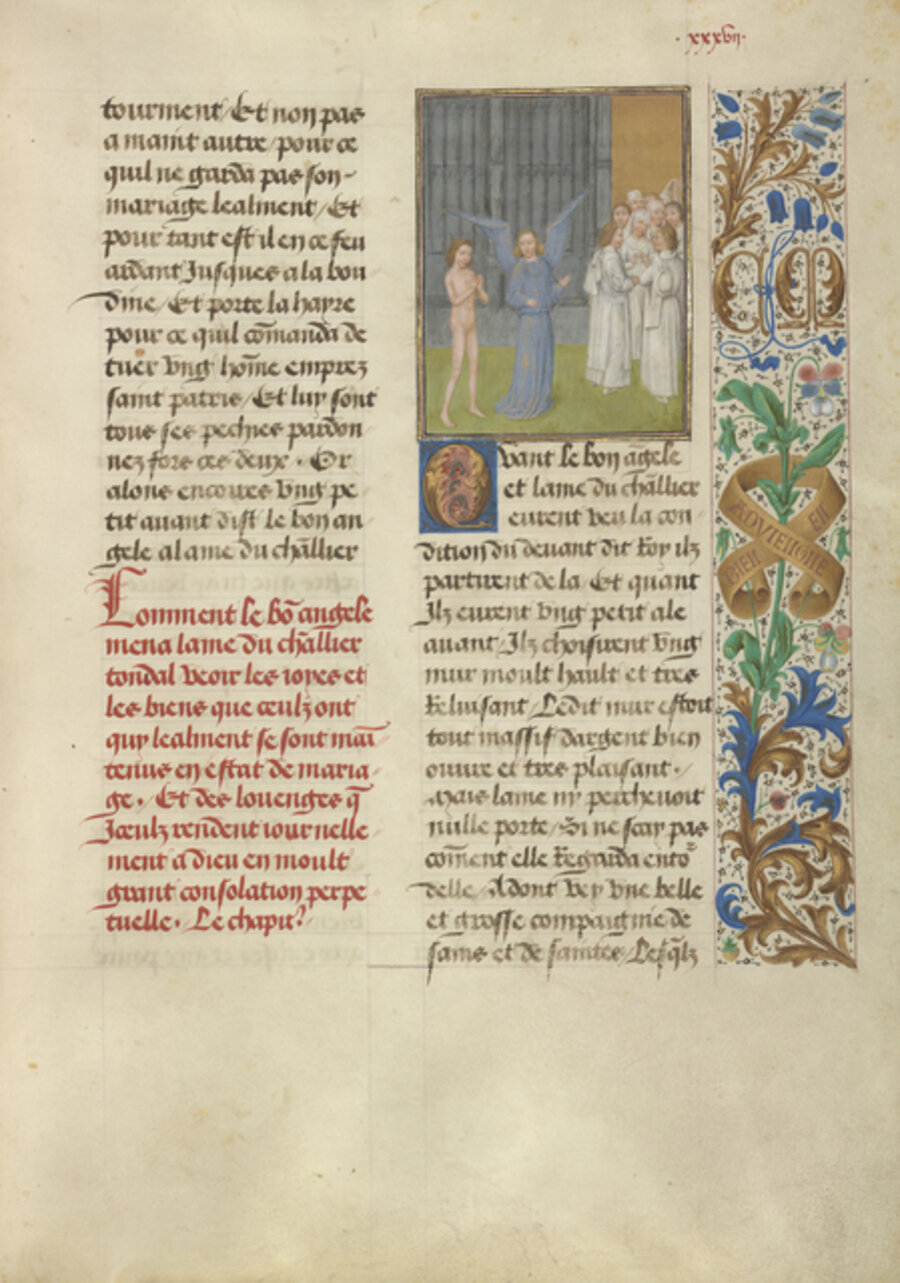 .xxxvii.
tourment/ Et non pas
a maint autre/ pour ce
quil ne garda pas son-
mariage lealment/ Et
pour tant est il en ce feu
ardant Jusques a la bou
dine/ Et porte la hayre
pour ce quil cōmanda de
tuer vng hōme emprez
saint patris/ Et luy sont
tous ses pechies pardon-
nez fors ces deux. Or
alons encoires vng pe
tit auant dist le bon an-
gele a lame du chlīer
Comment le bō angele
mena lame du chlīer
tondal veoir les ioyes et
les biens que ceulz ont
quy lealment se sont mai
tenus en estat de maria-
ge. Et des louenges q̄
Jceulz rendent iournelle
ment a dieu en moult
grant consolation perpe
tuelle. Le chapit̾
Quant le bon āgele
et lame du chlīer
eurent veu la con
dition du deuant dit Roy ilz
partirent de la. Et quant
Jlz eurent vng petit ale
auant/ Jlz choisirent vng
mur moult hault et tres
Reluisant/ Ledit mur estoit
tout massif dargent bien
ouure et tres plaisant.
Mais lame ny percheuoit
nulle porte/ Si ne scay pas
cōment elle Regarda entor
delle/ Adont vey vne belle
et grosse compaignie de
sains et de saintes/ Lesq̄lz
CM
BIEN EN
ADVIENGNE